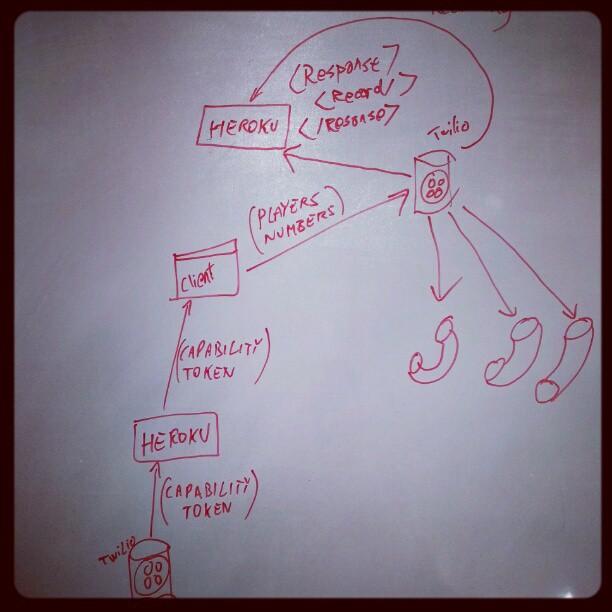 <Response>
<Record/>
</Resonse>
HEROKU
Twilio
(PLAYERS
NUMBERS)
Client
(CAPABILITY
TOKEN)
HEROKU
(CAPABILITY
TOKEN)
Twilio